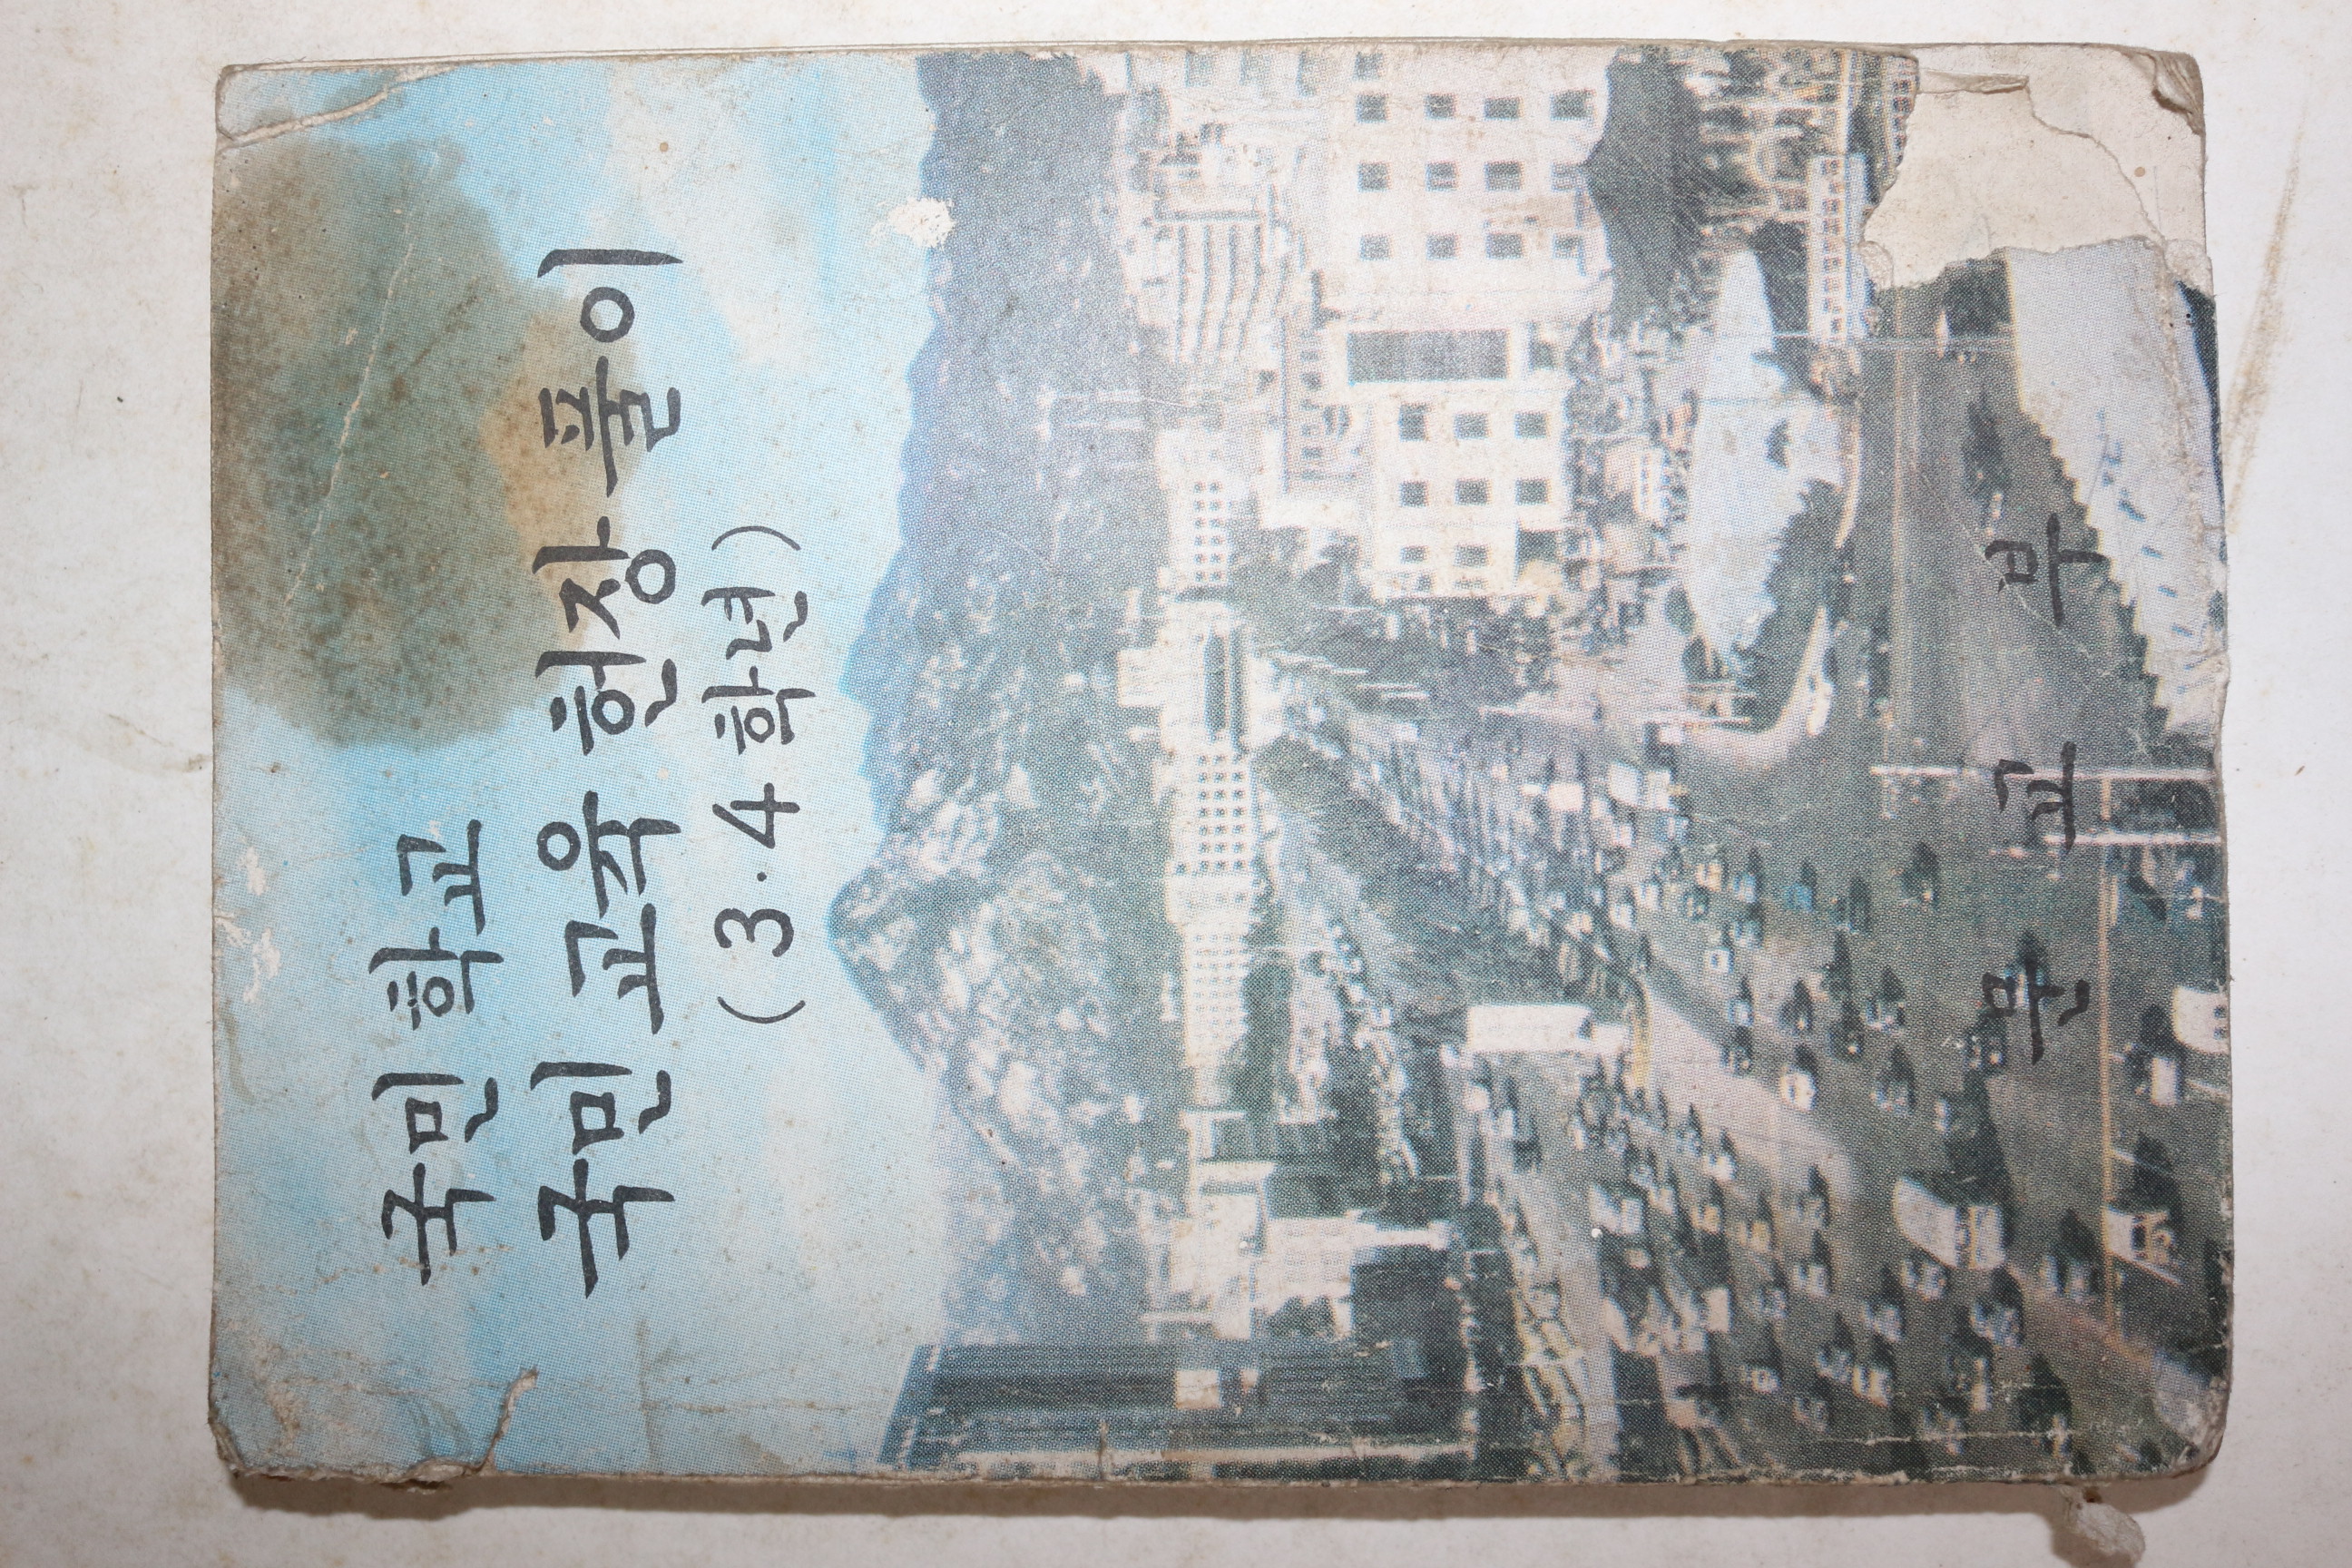 국민 학교
국민 교육 헌장 풀이
(3·4 학년)
문 교 부